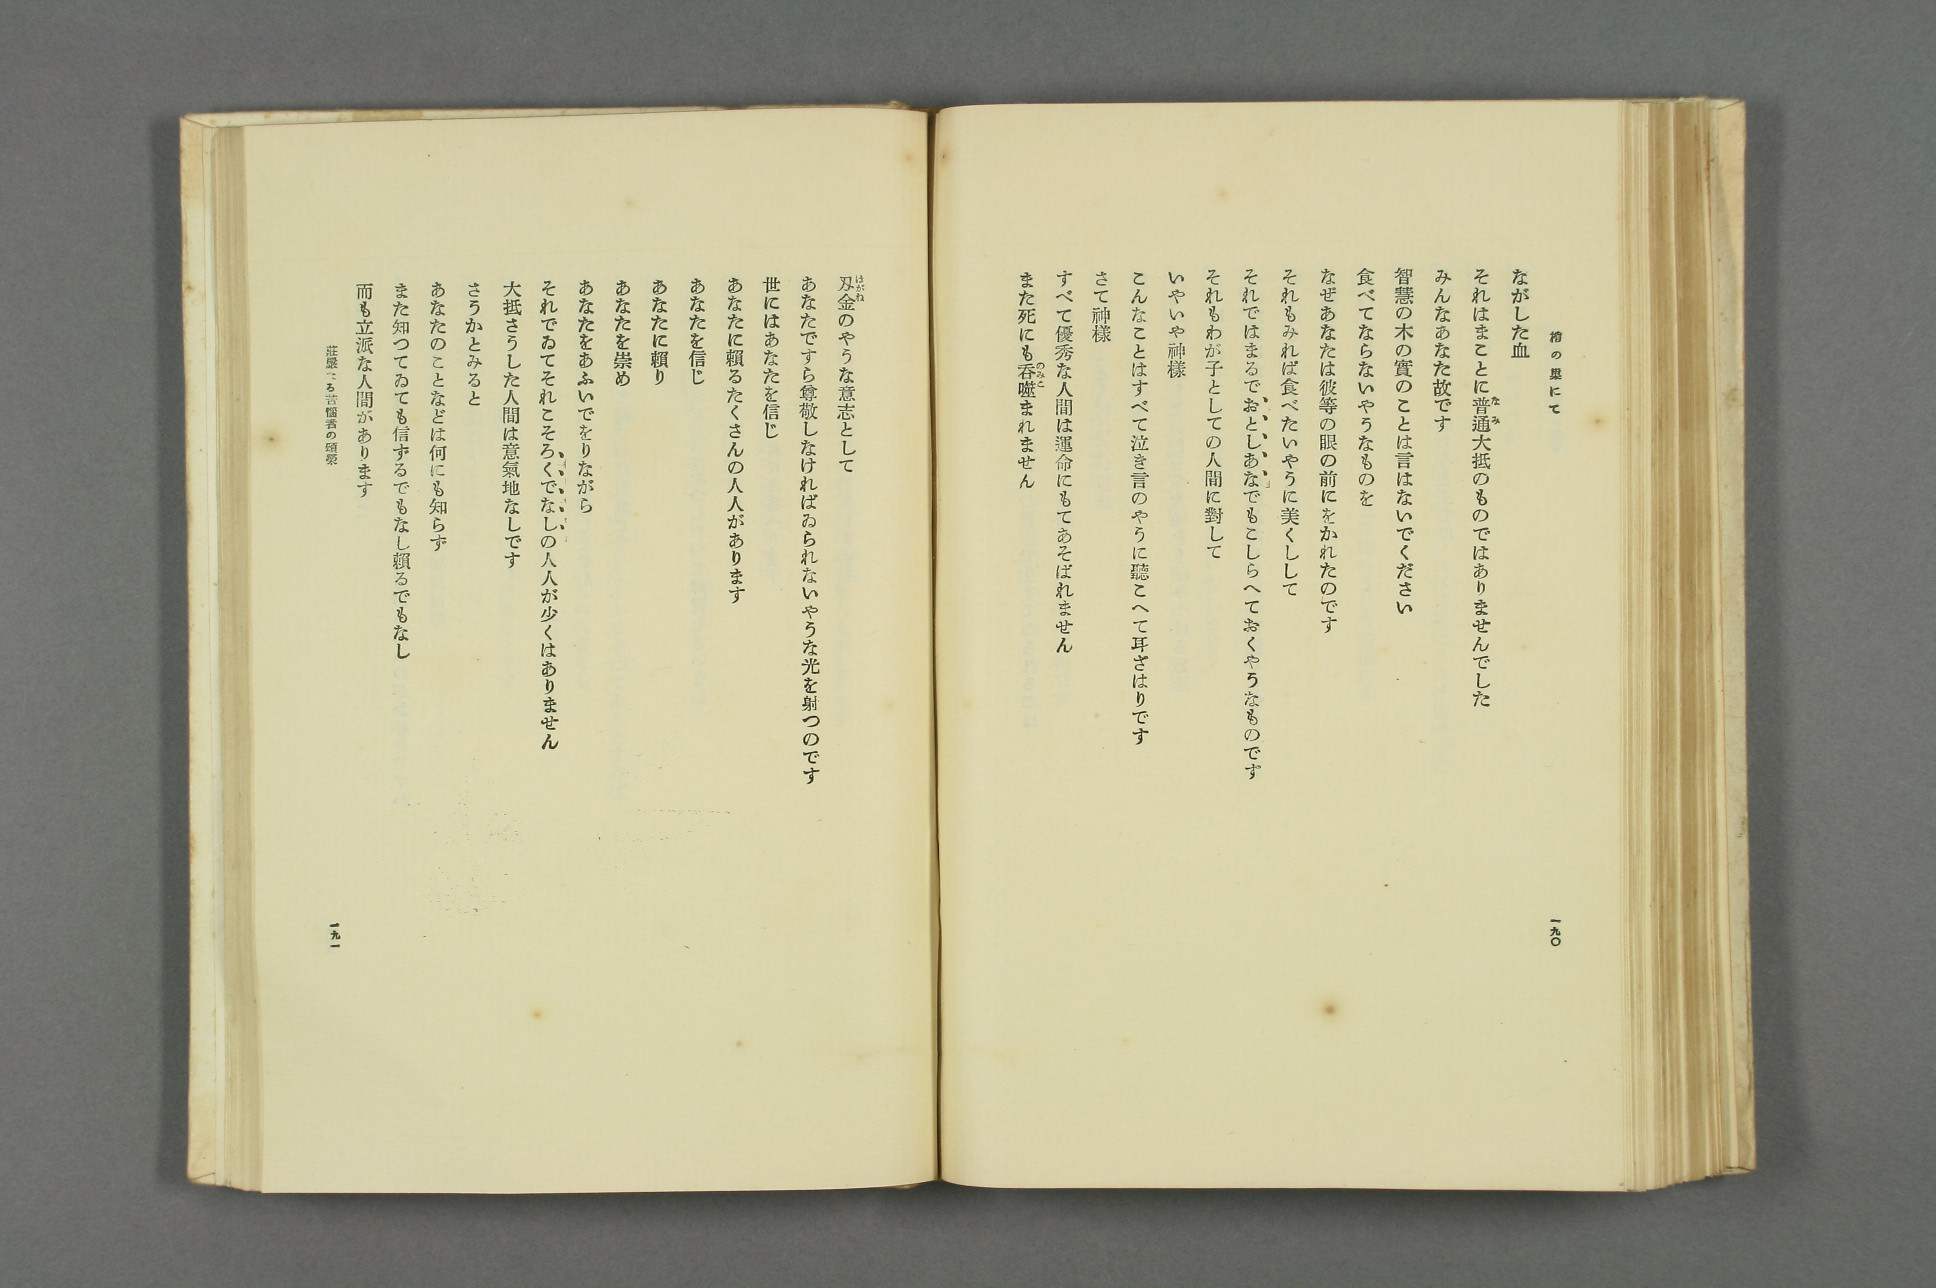 ながした血
それはまことに普通大抵のものではありませんでした
みんなあなた故です
智慧の木の實のことは言はないでください
食べてならないやうなものを
なぜあなたは彼等の眼の前にをかれたのです
それもみれば食べたいやうに美くしして
それではまるでおとしあなでもこしらへておくやうなものです
それもわが子としての人間に對して
いやいや神樣
こんなことはすべて泣き言のやうに聽こへて耳ざはりです
さて神樣
すべて優秀な人間は運命にもてあそばれません
また死にも呑噬まれません
一九〇
刄金のやうな意志として
あなたですら尊敬しなければゐられないやうな光を射つのです
世にはあなたを信じ
あなたに賴るたくさんの人人があります
あなたを信じ
あなたに賴り
あなたを崇め
あなたをあふいでをりながら
それでゐてそれこそろくでなしの人人が少くはありません
大抵さうした人間は意氣地なしです
さうかとみると
あなたのことなどは何にも知らず
また知つてゐても信ずるでもなし賴るでもなし
而も立派な人間があります
莊嚴なる苦惱者の頌榮
一九一